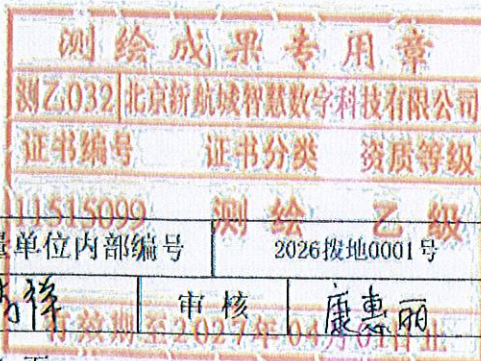 测绘成果专用章
测乙032 北京新航城智慧数字科技有限公司
证书编号 证书分类 资质等级
11515099 测绘 乙级
量单位内部编号 2026拨地0001号
祥 审核 康惠丽
有效期至2027年04月01日止